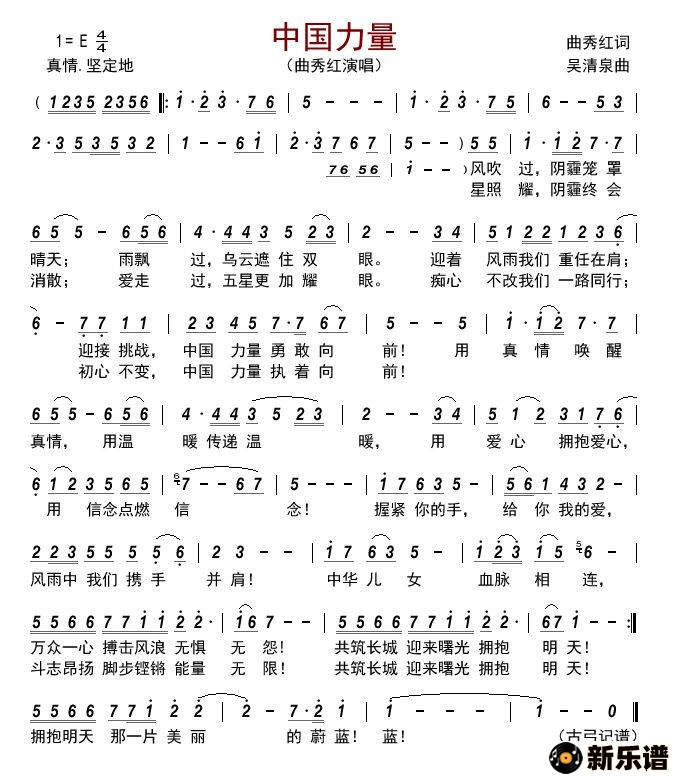 中国力量
1= E 4/4
曲秀红词
真情.坚定地
（曲秀红演唱）
吴清泉曲
( 1235 2356 |: 1 · 2 3 · 7 6 | 1 · 2 3 · 7 5 | 6 - - 5 3 |
2 · 3 5 3 5 3 2 | 1 - - 6 1 | 2 · 3 7 6 7 | 5 - - ) 5 5 | 1 · 1 2 7 · 7 |
7 6 5 6 | 1 - - )
风吹 过，阴霾笼 罩
星照 耀，阴霾终 会
6 5 5 - 6 5 | 4 · 4 4 3 5 3 | 2 - - 3 4 | 5 1 2 2 1 2 3 6 |
晴天； 雨飘 过，乌云遮 住 双 眼。 迎着 风雨我们 重任在肩；
消散； 爱走 过，五星更 加 耀 眼。 痴心 不改我们 一路同行；
6 - 7 7 1 1 | 2 3 4 5 7 · 7 6 7 | 5 - - 5 | 1 · 1 2 7 · 7 |
迎接 挑战， 中国 力量 勇 敢 向 前！ 用 真 情 唤 醒
初心 不变， 中国 力量 执 着 向 前！
6 5 5 - 6 5 6 | 4 · 4 4 3 5 2 3 | 2 - - 3 4 | 5 1 2 3 1 7 6 |
真情， 用温 暖 传递 温 暖， 用 爱 心 拥抱爱心，
6 6 1 2 3 5 6 5 | 7 - - 6 7 | 5 - - - | 1 7 6 3 5 - | 5 6 1 4 3 2 - |
用 信念点燃 信 念！ 握紧 你的手， 给 你 我的爱，
2 2 3 5 5 5 6 | 2 - 3 - | 1 7 6 3 - | 1 2 3 1 5 6 - |
风雨中 我们 携 手 并 肩！ 中华 儿 女 血脉 相 连，
5 5 6 6 7 7 1 1 2 · 2 | 1 6 7 - - | 5 5 6 6 7 7 1 1 2 · 2 | 6 7 1 - - :|
万众一心 搏击风浪 无惧 无 怨！ 共筑长城 迎来曙光 拥抱 明 天！
斗志昂扬 脚步铿锵 能量 无 限！ 共筑长城 迎来曙光 拥抱 明 天！
5 5 6 6 7 7 1 | 2 - 2 - | 3 - - - | 7 · 2 1 - | 1 - - - | 1 - - 0 ‖
拥抱明天 那一片 美 丽 的 蔚 蓝！ 蓝！ （古弓记谱）
新乐谱